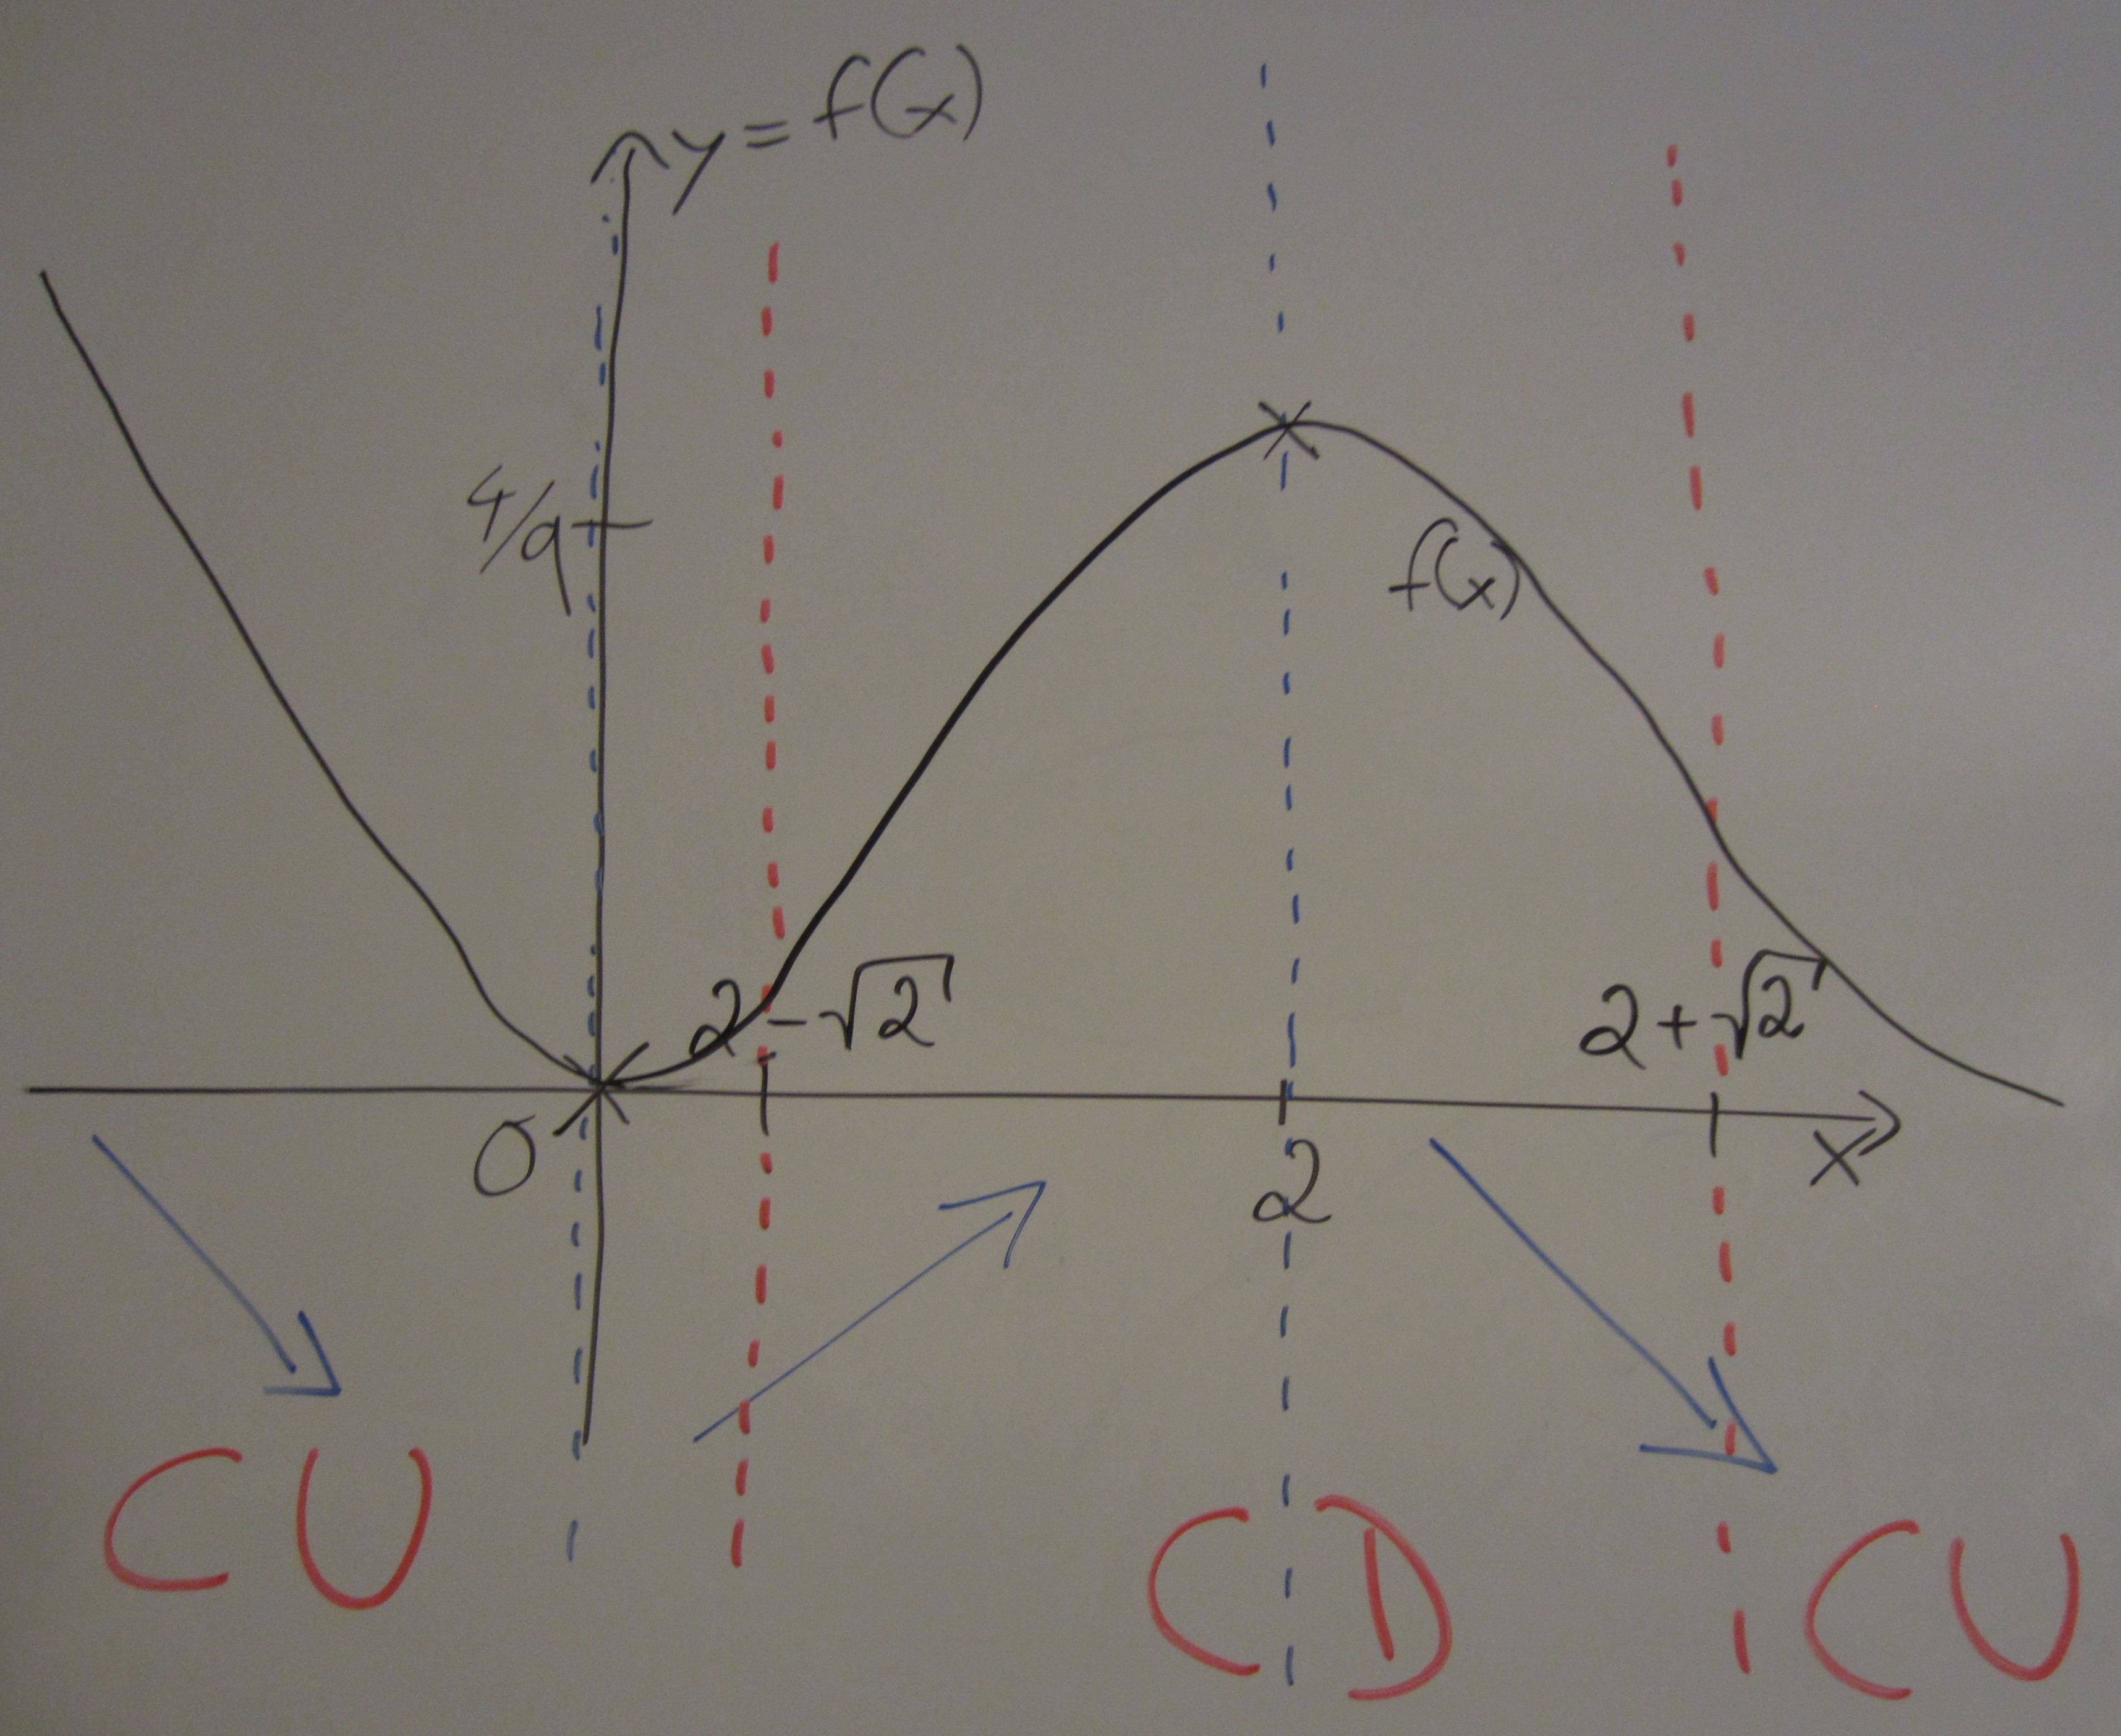 y = f(x)
4/9
f(x)
2 - √2
2 + √2
0
2
x
CU
CD
CU